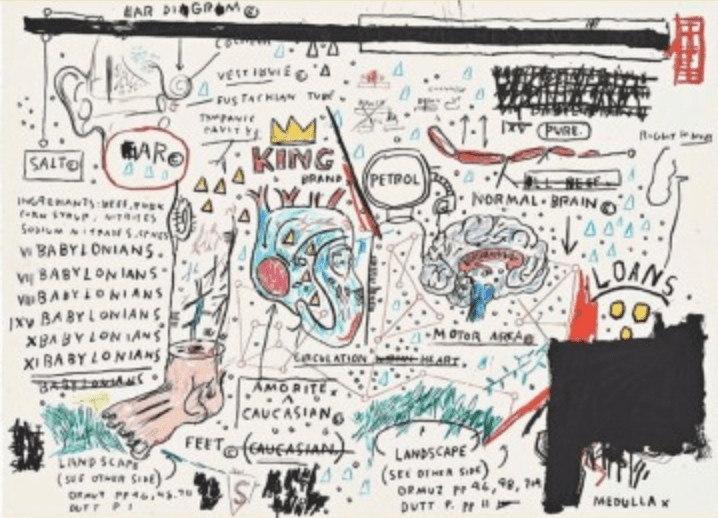 EAR DIAGROM ©
VESTIBULE ©
EUSTACHIAN TUBE
TYMPANIC
CAVITY
SALT©
EAR©
KING
BRAND
PETROL
PURE.
ALL BEEF.
NORMAL BRAIN ©
INGREDIENTS: BEEF, PORK
CORN SYRUP, NITRITES
SODIUM NITRATES, SPICES
VI BABYLONIANS.
VII BABYLONIANS.
VIII BABYLONIANS
IXV BABYLONIANS
X BABYLONIANS
XI BABYLONIANS
BABYLONIANS
LOANS
MOTOR AREA©
CIRCULATION HEART.
AMORITE
^
CAUCASIAN©
FEET© (CAUCASIAN)
LANDSCAPE
(SEE OTHER SIDE)
ORMUZ PP 46,
DUTT P 1
S
LANDSCAPE
(SEE OTHER SIDE)
ORMUZ PP 46, 98,
DUTT P. PP 11
MEDULLA X